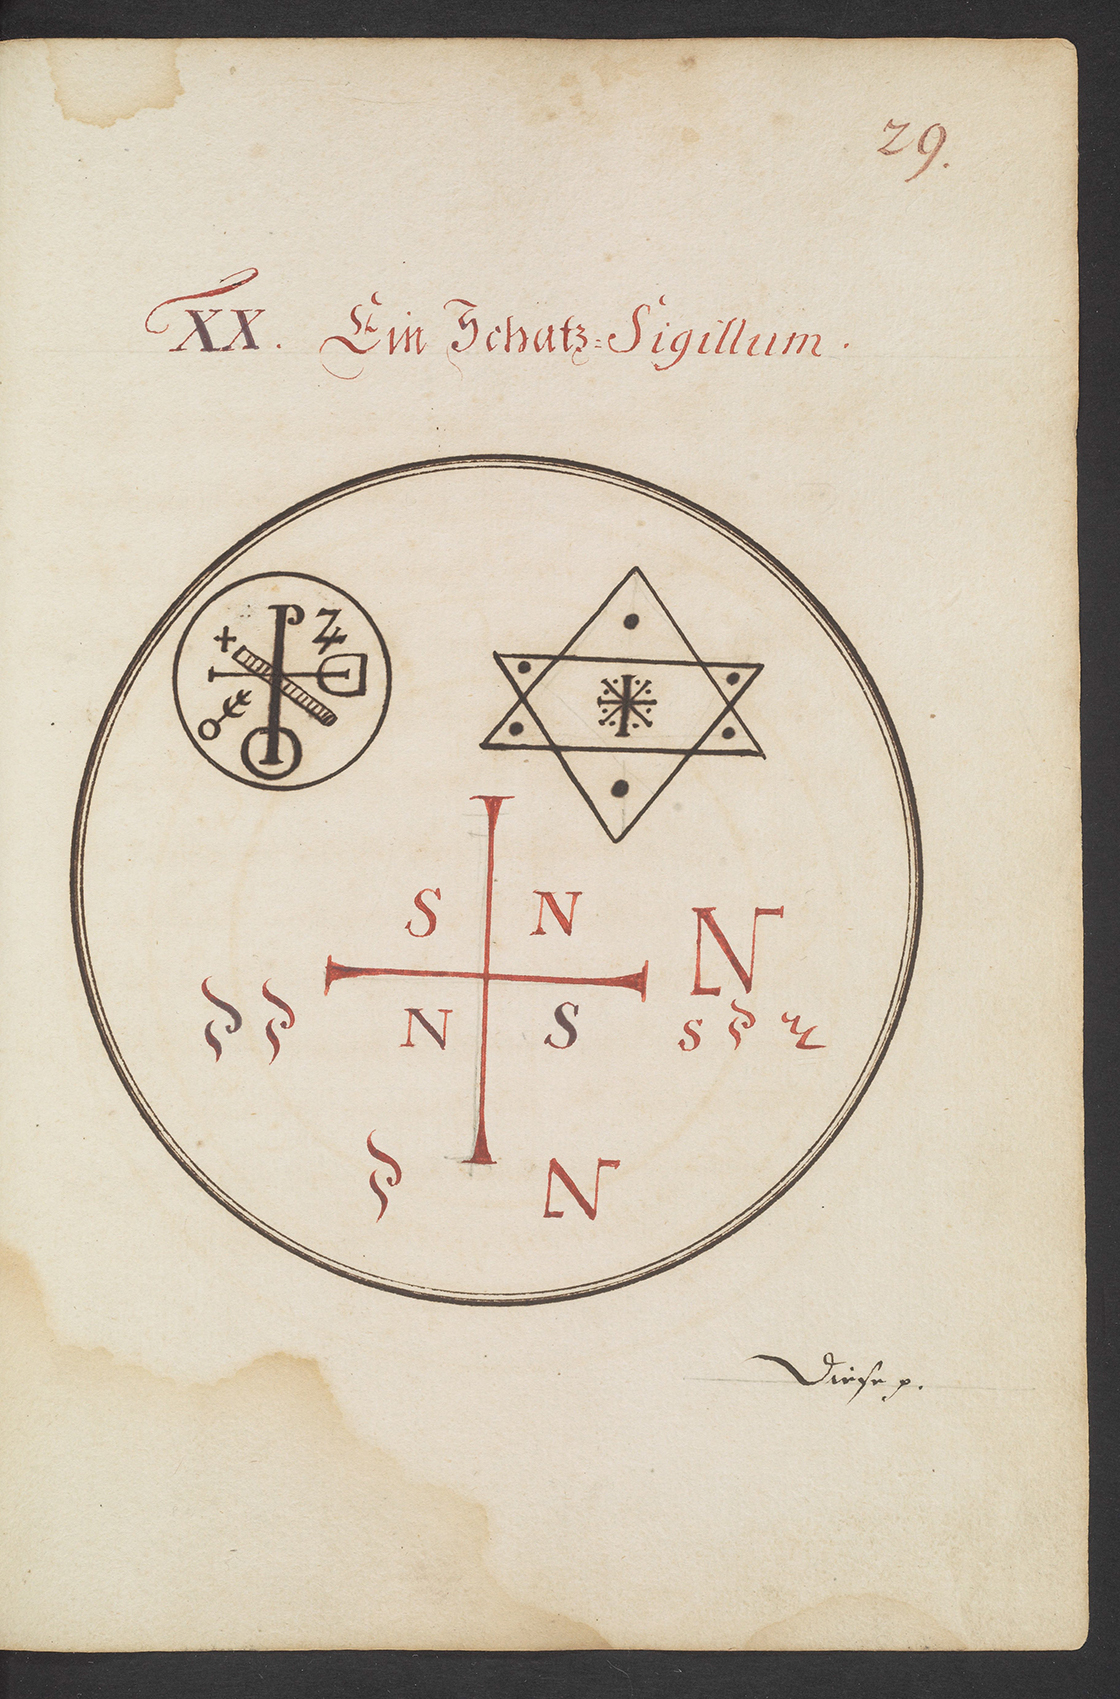 29.
XX. Ein Schatz=Sigillum.
P Z
S N
N
N S
S
N
Diese p.